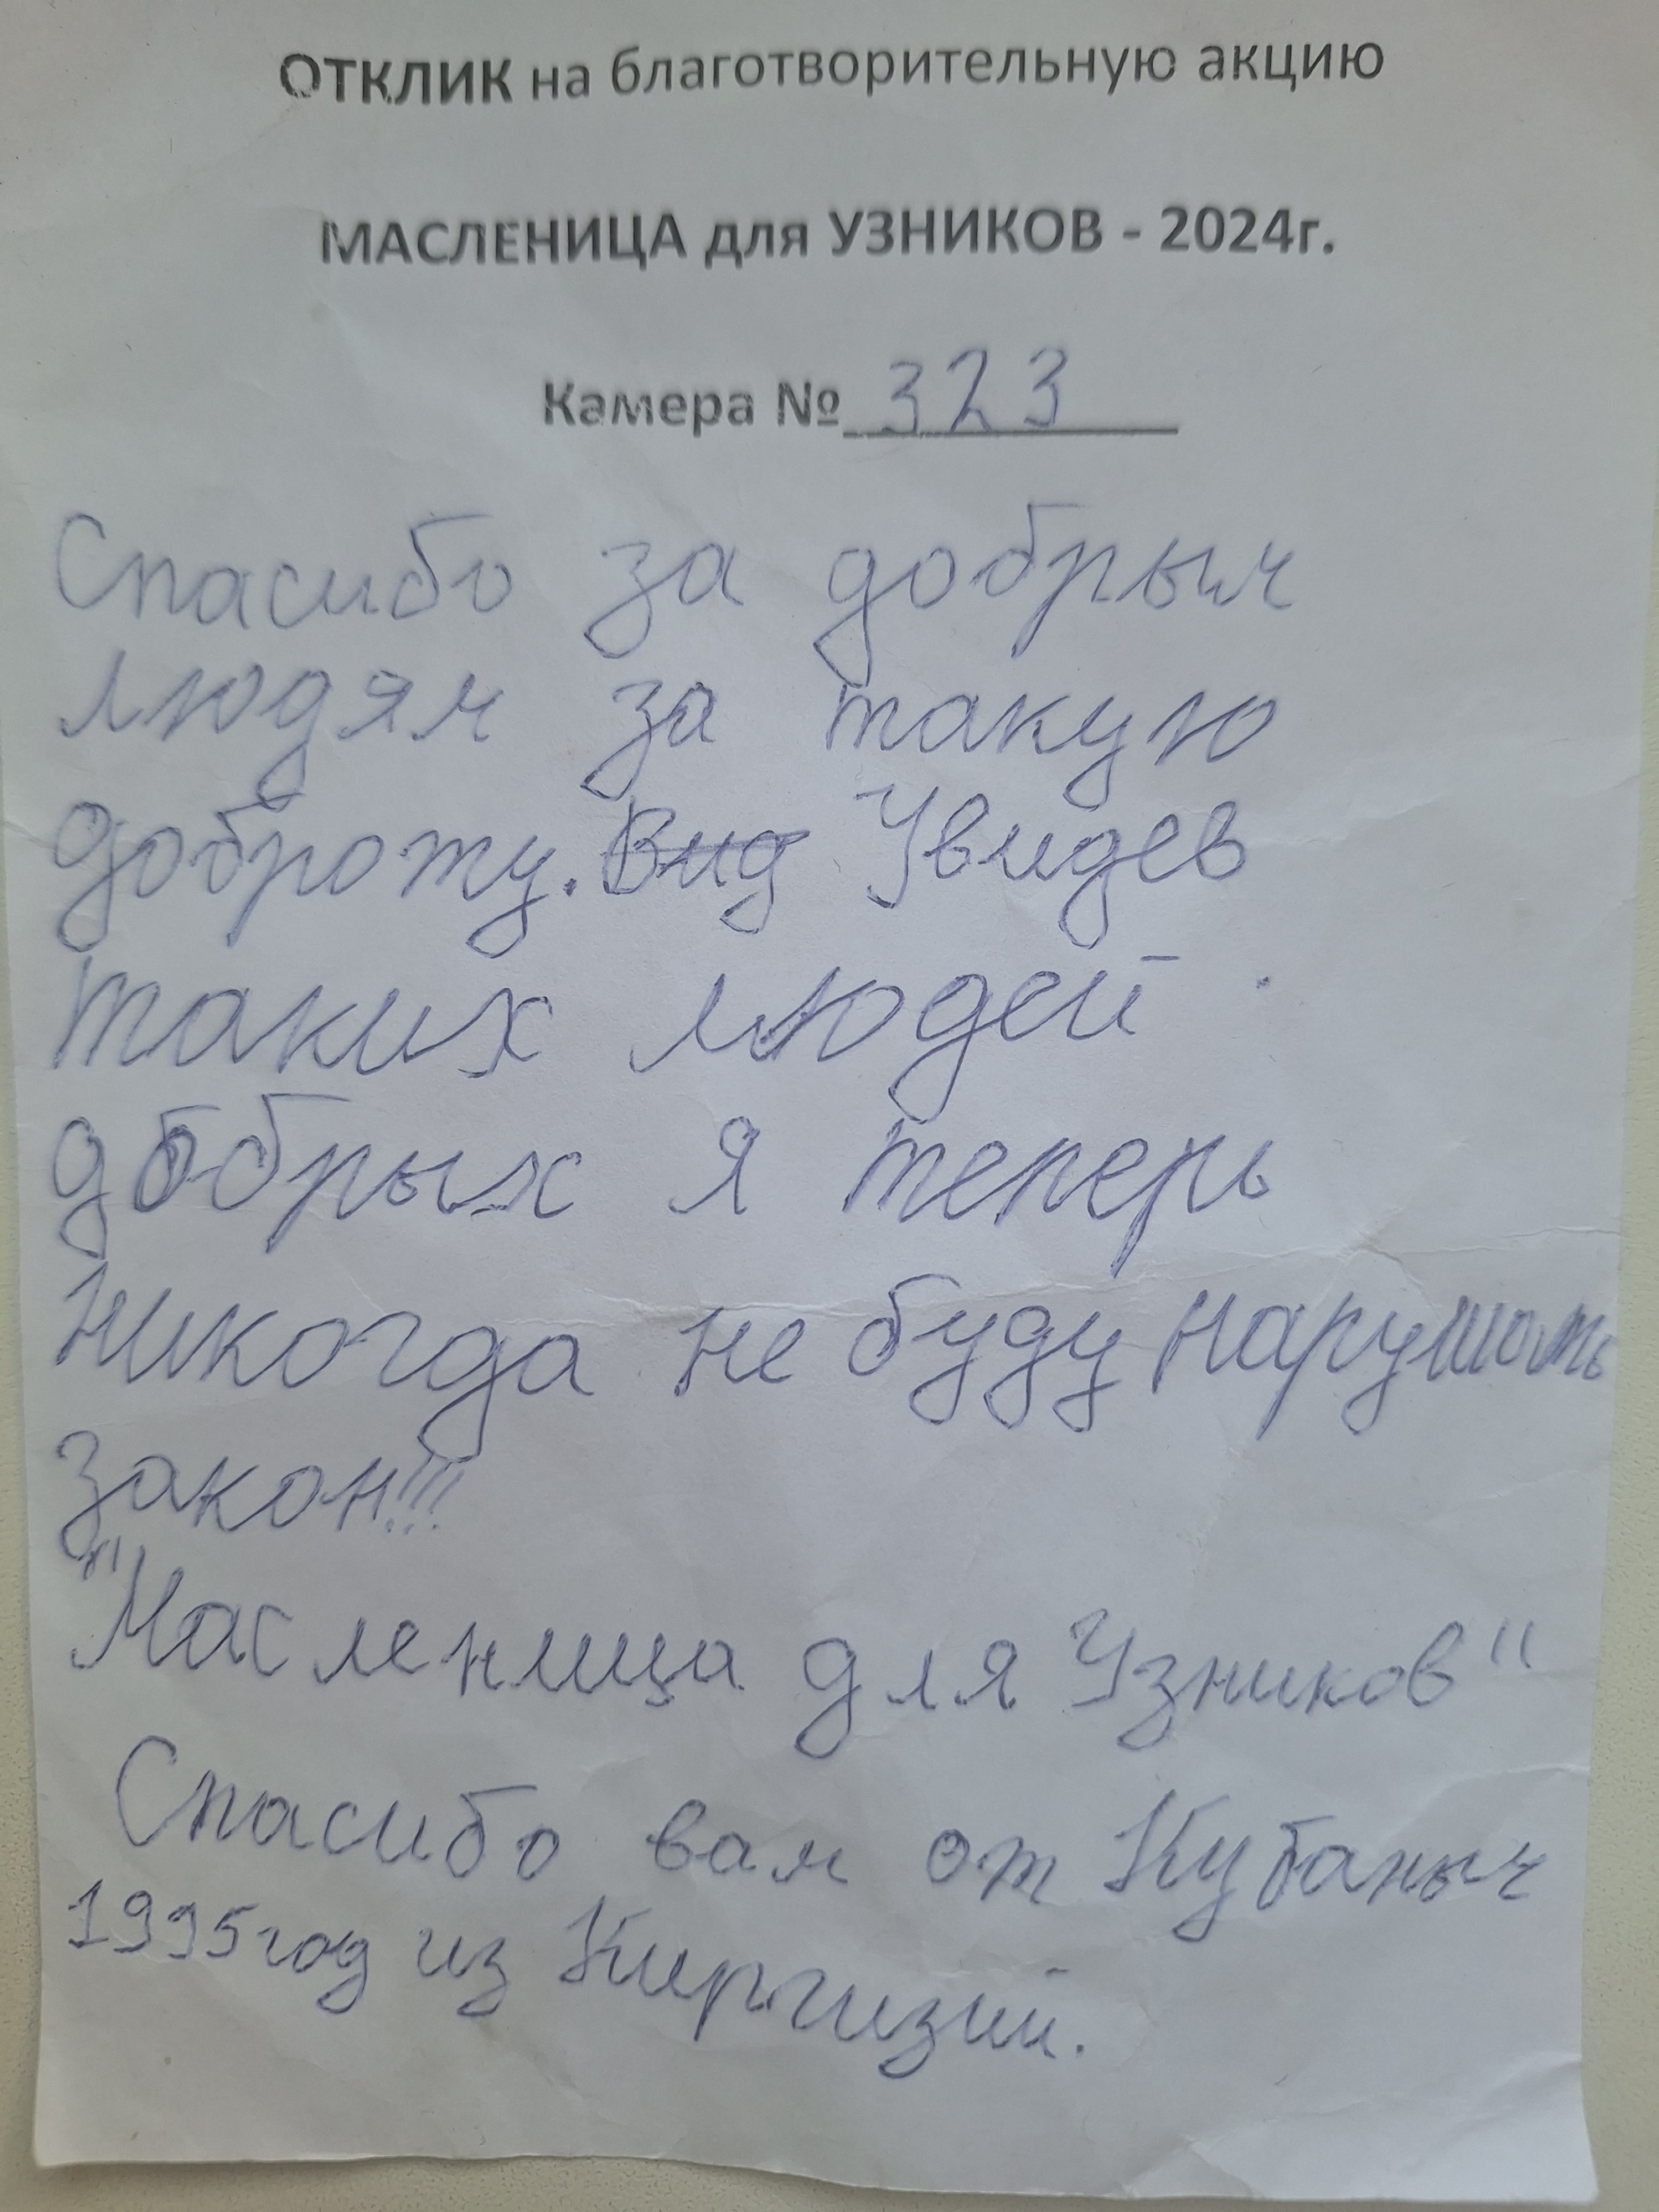 ОТКЛИК на благотворительную акцию
МАСЛЕНИЦА для УЗНИКОВ - 2024г.
Камера № 323
Спасибо за добрым
людям за такую
доброту. Вид Увидев
таких людей
добрых я теперь
никогда не буду нарушать
закон!!!
"Масленица для Узников"
Спасибо вам от Кубаныч
1995год из Киргизий.